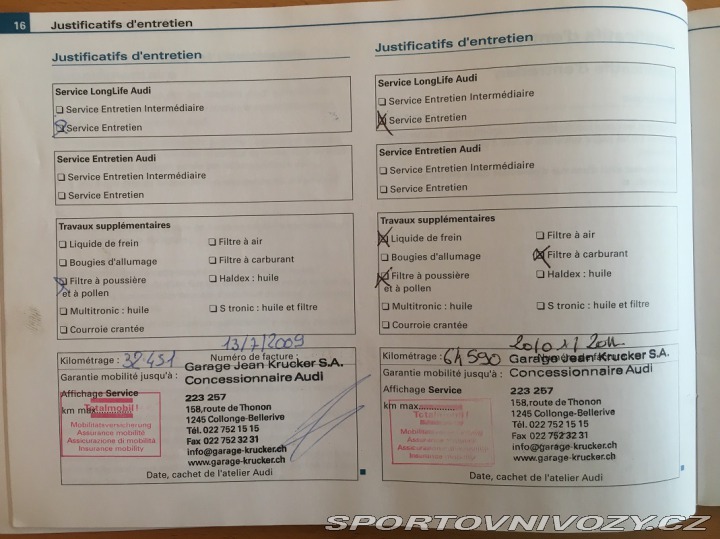 16 Justificatifs d'entretien
Justificatifs d'entretien
Service LongLife Audi
❏ Service Entretien Intermédiaire
❏ Service Entretien
Service Entretien Audi
❏ Service Entretien Intermédiaire
❏ Service Entretien
Travaux supplémentaires
❏ Liquide de frein
❏ Filtre à air
❏ Bougies d'allumage
❏ Filtre à carburant
❏ Filtre à poussière
et à pollen
❏ Haldex : huile
❏ Multitronic : huile
❏ S tronic : huile et filtre
❏ Courroie crantée
13/7/2009
Kilométrage : 32 451
Numéro de facture :
Garage Jean Krucker S.A.
Garantie mobilité jusqu'à :
Concessionnaire Audi
Affichage Service
223 257
km max.
158,route de Thonon
1245 Collonge-Bellerive
Tél. 022 752 15 15
Fax 022 752 32 31
info@garage-krucker.ch
www.garage-krucker.ch
Totalmobil!
Mobilitätsversicherung
Assurance mobilité
Assicurazione di mobilità
Insurance mobility
Date, cachet de l'atelier Audi
Justificatifs d'entretien
Service LongLife Audi
❏ Service Entretien Intermédiaire
❏ Service Entretien
Service Entretien Audi
❏ Service Entretien Intermédiaire
❏ Service Entretien
Travaux supplémentaires
❏ Liquide de frein
❏ Filtre à air
❏ Bougies d'allumage
❏ Filtre à carburant
❏ Filtre à poussière
et à pollen
❏ Haldex : huile
❏ Multitronic : huile
❏ S tronic : huile et filtre
❏ Courroie crantée
Kilométrage : 64 590
Garage Jean Krucker S.A.
Garantie mobilité jusqu'à :
Concessionnaire Audi
Affichage Service
223 257
km max.
158,route de Thonon
1245 Collonge-Bellerive
Tél. 022 752 15 15
Fax 022 752 32 31
info@garage-krucker.ch
www.garage-krucker.ch
Totalmobil!
Assurance mobilité
Assicurazione di mobilità
Insurance mobility
Date, cachet de l'atelier Audi
SPORTOVNIVOZY.CZ